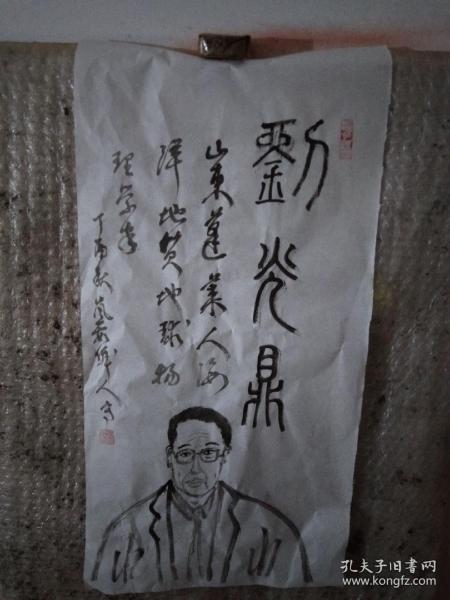 劉光鼎
山東蓬萊人海
洋地質地球物
理學家
丁酉秋
人
孔夫子旧书网
www.kongfz.com